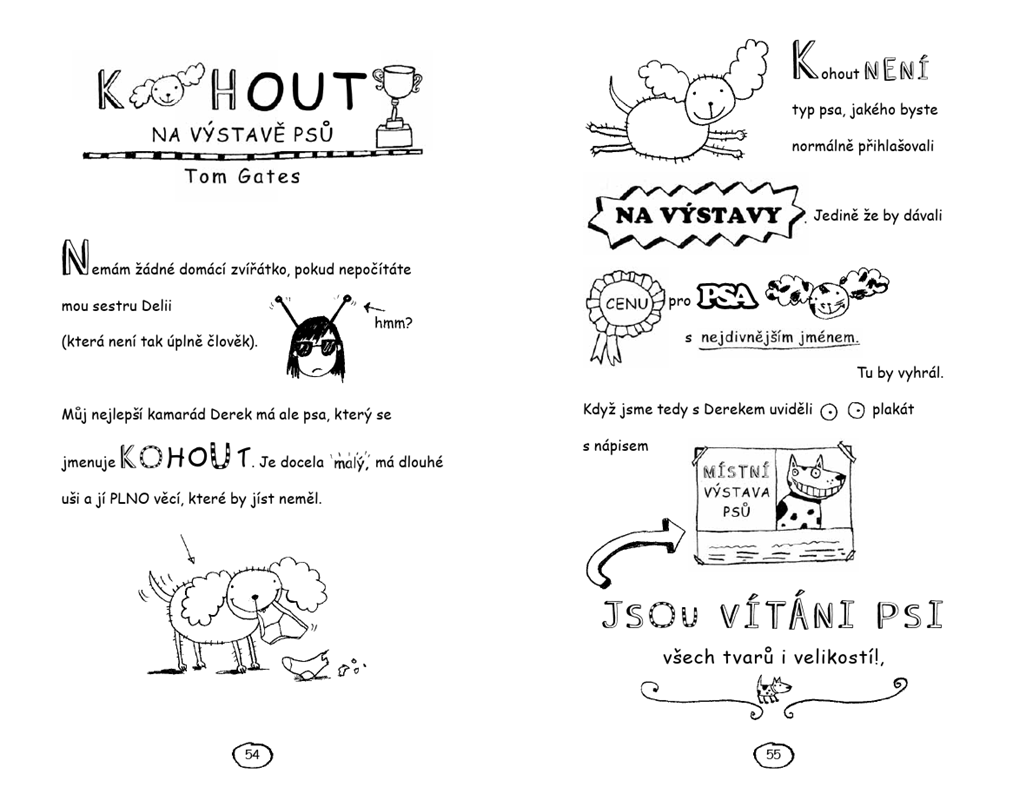 KOHOUT
NA VÝSTAVĚ PSŮ
Tom Gates
Nemám žádné domácí zvířátko, pokud nepočítáte
mou sestru Delii
hmm?
(která není tak úplně člověk).
Můj nejlepší kamarád Derek má ale psa, který se
jmenuje KOHOUT. Je docela malý, má dlouhé
uši a jí PLNO věcí, které by jíst neměl.
54
Kohout NENÍ
typ psa, jakého byste
normálně přihlašovali
NA VÝSTAVY. Jedině že by dávali
CENU pro PSA
s nejdivnějším jménem.
Tu by vyhrál.
Když jsme tedy s Derekem uviděli plakát
s nápisem
MÍSTNÍ
VÝSTAVA
PSŮ
JSOU VÍTÁNI PSI
všech tvarů i velikostí!,
55